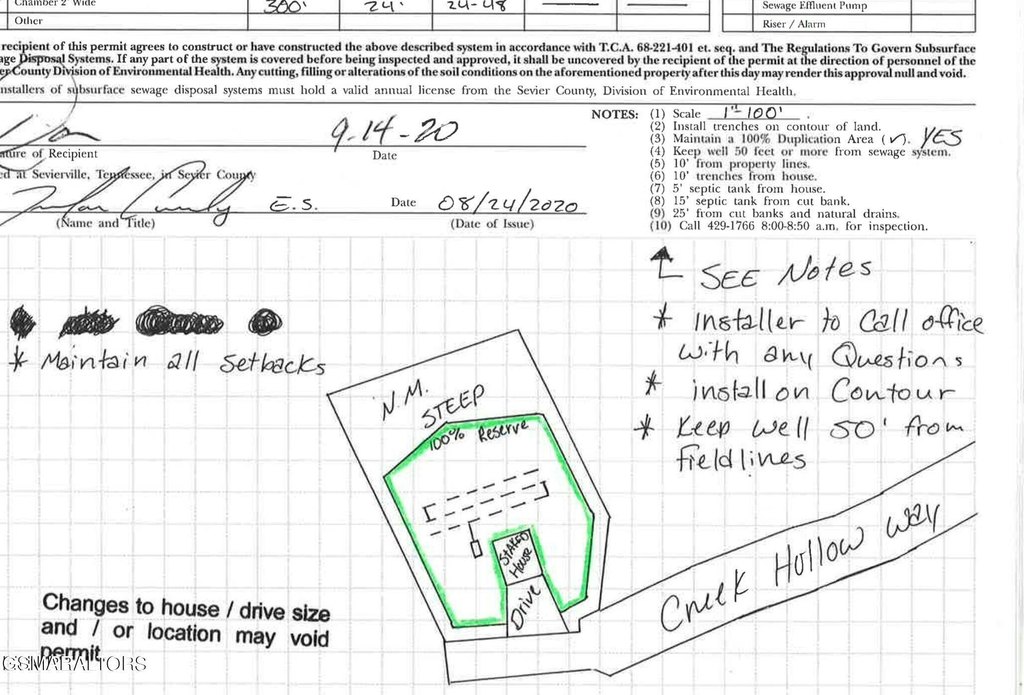 Chamber 2' Wide 300' 24" 24-48 — — Sewage Effluent Pump
Other Riser / Alarm
recipient of this permit agrees to construct or have constructed the above described system in accordance with T.C.A. 68-221-401 et. seq. and The Regulations To Govern Subsurface
age Disposal Systems. If any part of the system is covered before being inspected and approved, it shall be uncovered by the recipient of the permit at the direction of personnel of the
er County Division of Environmental Health. Any cutting, filling or alterations of the soil conditions on the aforementioned property after this day may render this approval null and void.
nstallers of subsurface sewage disposal systems must hold a valid annual license from the Sevier County, Division of Environmental Health.
9-14-20
ature of Recipient Date
ed at Sevierville, Tennessee, in Sevier County
E.S. Date 08/24/2020
(Name and Title) (Date of Issue)
NOTES: (1) Scale 1"-100' .
(2) Install trenches on contour of land.
(3) Maintain a 100% Duplication Area (✓). YES
(4) Keep well 50 feet or more from sewage system.
(5) 10' from property lines.
(6) 10' trenches from house.
(7) 5' septic tank from house.
(8) 15' septic tank from cut bank.
(9) 25' from cut banks and natural drains.
(10) Call 429-1766 8:00-8:50 a.m. for inspection.
SEE Notes
* Installer to Call office
with any Questions
* install on Contour
* Keep well 50' from
fieldlines
* Maintain all Setbacks
N.M.
STEEP
100% Reserve
STAKED
House
Drive
Creek Hollow Way
Changes to house / drive size
and / or location may void
permit
GSMARALTORS